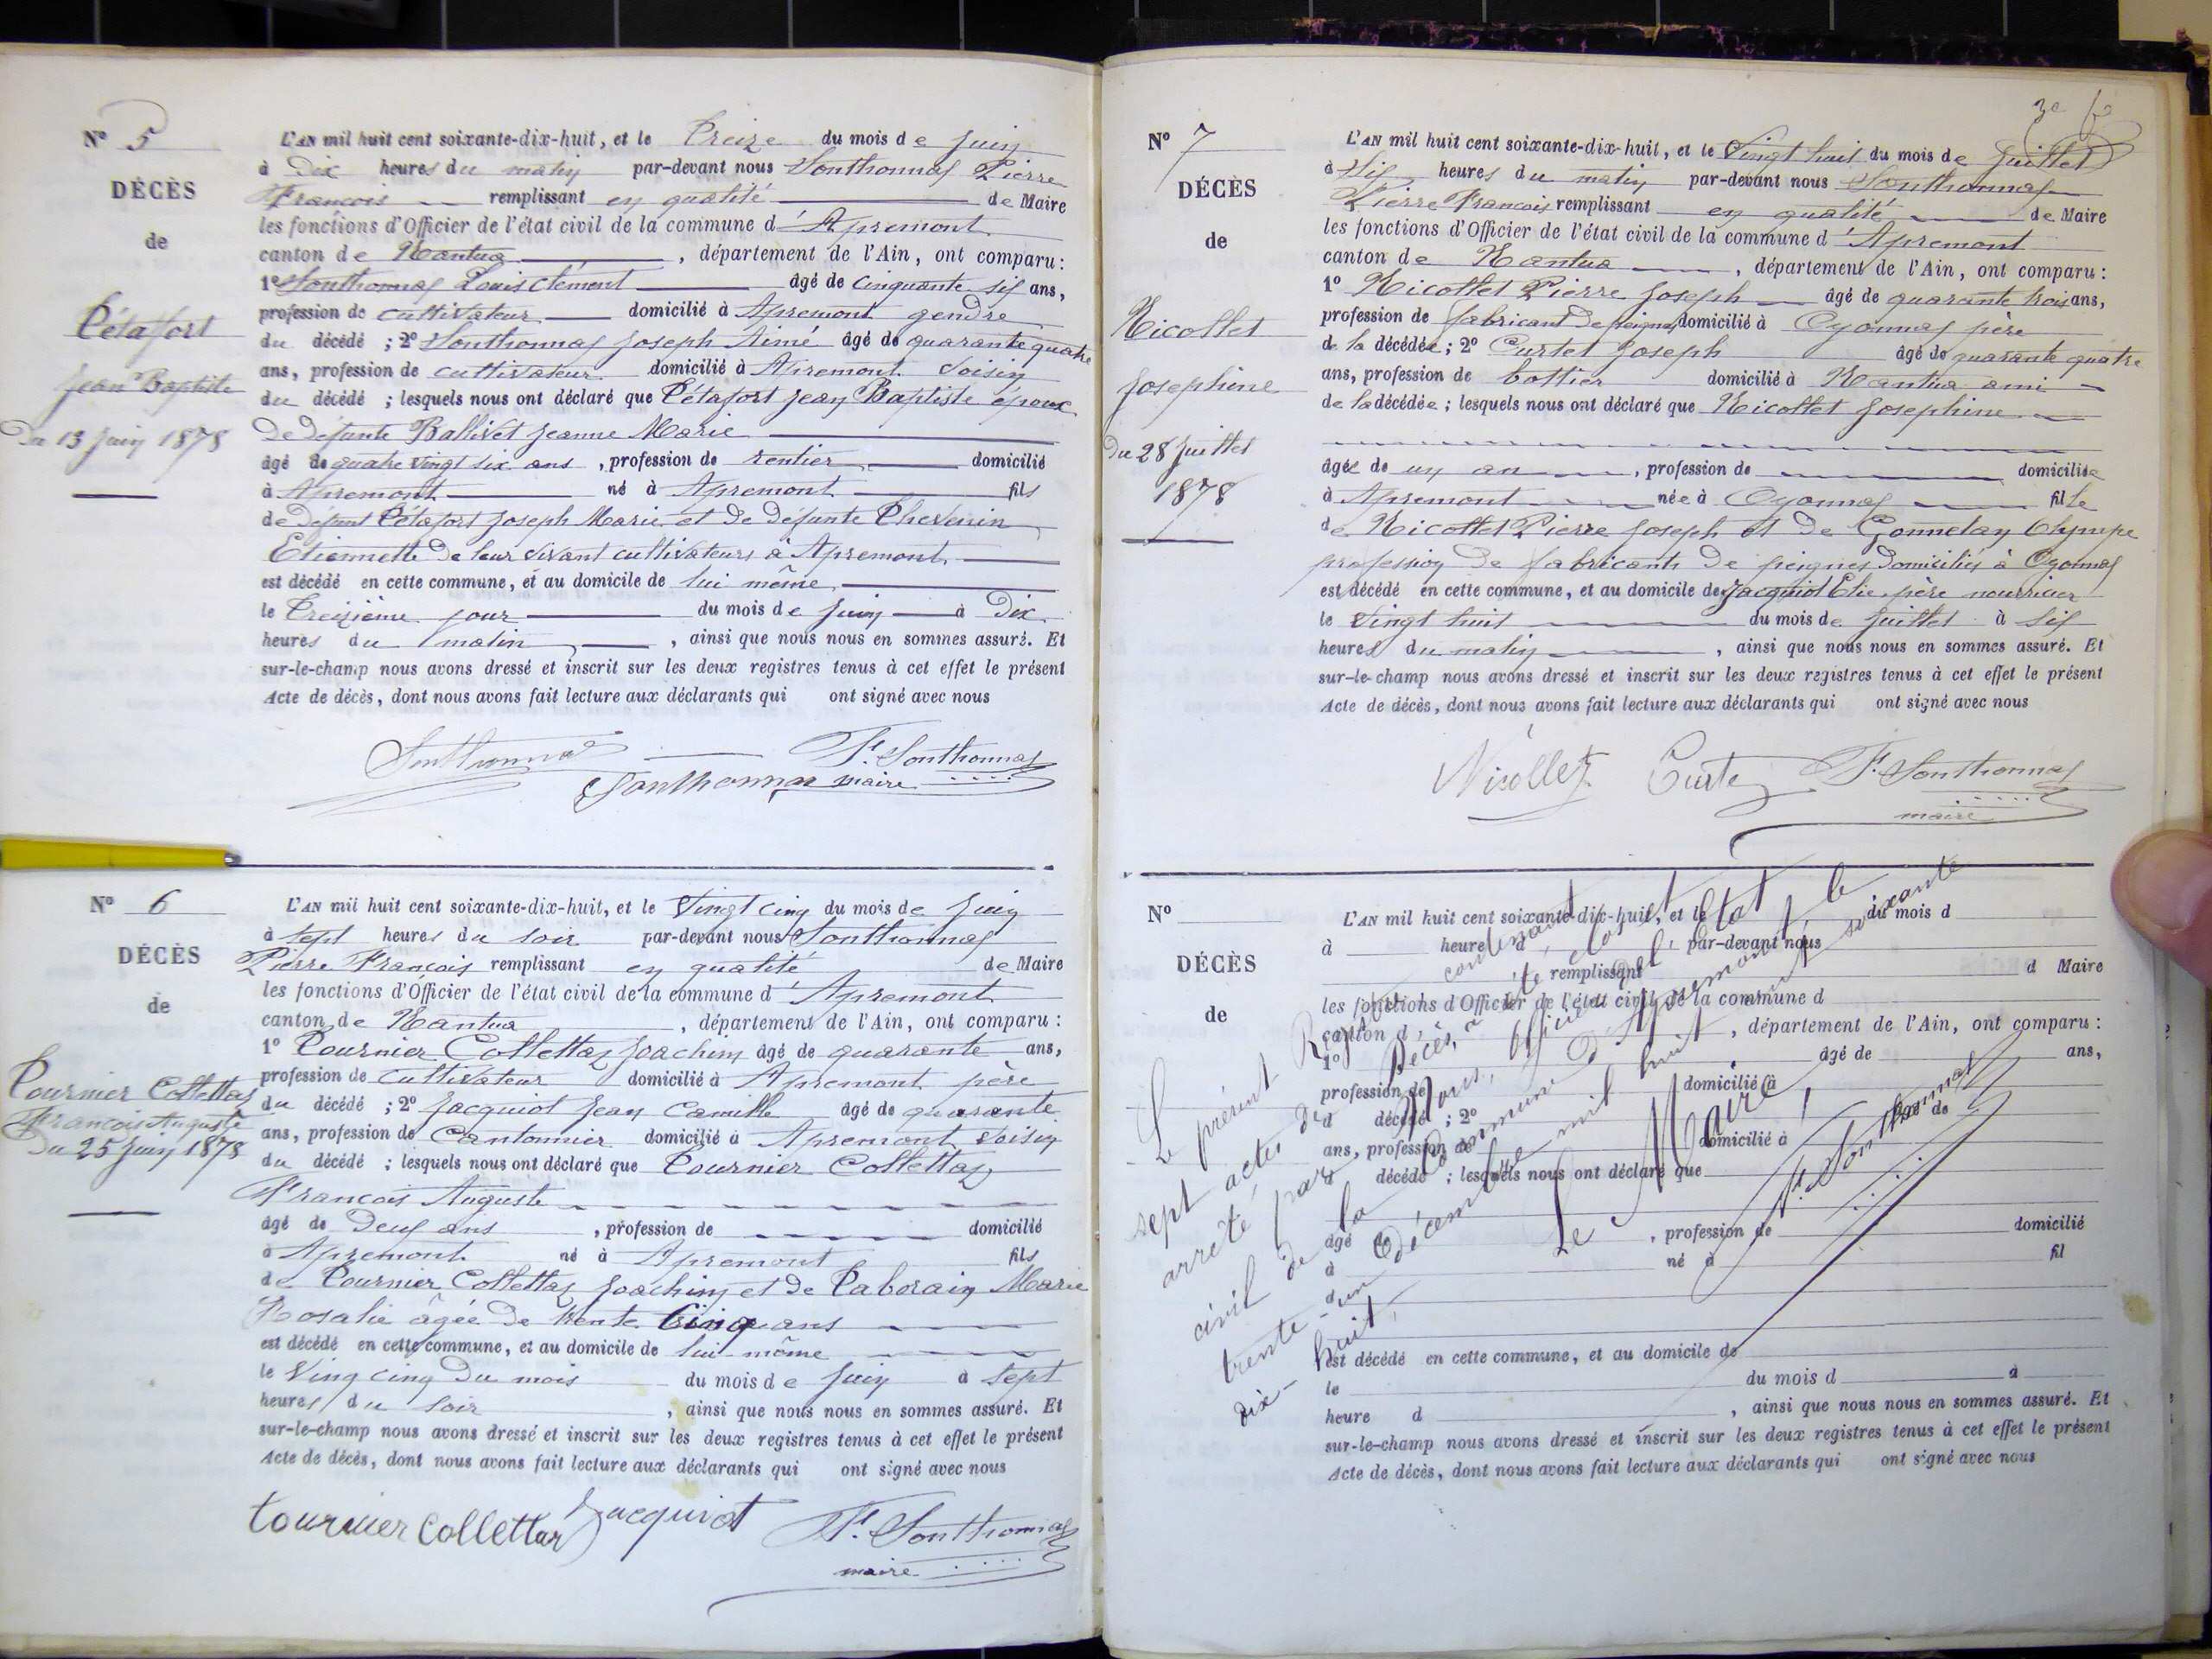 N° 5
DÉCÈS
de
Pétafort
Jean Baptiste
Du 13 Juin 1878
L'AN mil huit cent soixante-dix-huit, et le Treize du mois de Juin
à Dix heures du matin par-devant nous Sonthonnas Pierre
François remplissant en qualité de Maire
les fonctions d'Officier de l'état civil de la commune d'Apremont
canton de Nantua, département de l'Ain, ont comparu :
1° Sonthonnas Louis Clément âgé de cinquante six ans,
profession de cultivateur domicilié à Apremont gendre
du décédé ; 2° Sonthonnas Joseph Aimé âgé de quarante quatre
ans, profession de cultivateur domicilié à Apremont voisin
du décédé ; lesquels nous ont déclaré que Pétafort Jean Baptiste époux
De défunte Ballivet Jeanne Marie
âgé de quatre vingt six ans, profession de rentier domicilié
à Apremont né à Apremont fils
de Défunt Pétafort Joseph Marie et De Défunte Thevenin
Etiennette De leur vivant cultivateurs à Apremont
est décédé en cette commune, et au domicile de lui même
le Treizième jour du mois de Juin à Dix
heures du matin, ainsi que nous nous en sommes assuré. Et
sur-le-champ nous avons dressé et inscrit sur les deux registres tenus à cet effet le présent
Acte de décès, dont nous avons fait lecture aux déclarants qui ont signé avec nous
Sonthonnas F. Sonthonnas
Sonthonnas maire
N° 6
DÉCÈS
de
Tournier Collettaz
François Auguste
Du 25 Juin 1878
L'AN mil huit cent soixante-dix-huit, et le Vingt cinq du mois de Juin
à sept heures du soir par-devant nous Sonthonnas
Pierre François remplissant en qualité de Maire
les fonctions d'Officier de l'état civil de la commune d'Apremont
canton de Nantua, département de l'Ain, ont comparu :
1° Tournier Collettaz Joachim âgé de quarante ans,
profession de cultivateur domicilié à Apremont père
du décédé ; 2° Jacquiot Jean Camille âgé de quarante
ans, profession de Cantonnier domicilié à Apremont voisin
du décédé ; lesquels nous ont déclaré que Tournier Collettaz
François Auguste
âgé de Deux ans, profession de domicilié
à Apremont né à Apremont fils
de Tournier Collettaz Joachim et de Taborain Marie
Rosalie âgée De trente Cinq ans
est décédé en cette commune, et au domicile de lui-même
le Ving cinq Du mois du mois de Juin à sept
heures du soir, ainsi que nous nous en sommes assuré. Et
sur-le-champ nous avons dressé et inscrit sur les deux registres tenus à cet effet le présent
Acte de décès, dont nous avons fait lecture aux déclarants qui ont signé avec nous
tournier Collettaz Jacquiot F. Sonthonnas
maire
N° 7
DÉCÈS
de
Nicollet
Josephine
Du 28 Juillet
1878
L'AN mil huit cent soixante-dix-huit, et le Vingt huit du mois de Juillet
à Six heures du matin par-devant nous Sonthonnas
Pierre François remplissant en qualité de Maire
les fonctions d'Officier de l'état civil de la commune d'Apremont
canton de Nantua, département de l'Ain, ont comparu :
1° Nicollet Pierre Joseph âgé de quarante trois ans,
profession de fabricant De peignes domicilié à Oyonnax père
de la décédée ; 2° Curtet Joseph âgé de quarante quatre
ans, profession de bottier domicilié à Nantua ami
de la décédée ; lesquels nous ont déclaré que Nicollet Josephine
âgée de un an, profession de domiciliée
à Apremont née à Oyonnax fille
de Nicollet Pierre Joseph et De Gonnetan Olympe
profession De fabricants De peignes Domiciliés à Oyonnax
est décédé en cette commune, et au domicile de Jacquiot Elie, père nourricier
le Vingt huit du mois de Juillet à six
heures du matin, ainsi que nous nous en sommes assuré. Et
sur-le-champ nous avons dressé et inscrit sur les deux registres tenus à cet effet le présent
Acte de décès, dont nous avons fait lecture aux déclarants qui ont signé avec nous
Nicollet Curtet F. Sonthonnas
maire
N°
DÉCÈS
de
L'AN mil huit cent soixante-dix-huit, et le du mois d
à heure d par-devant nous
remplissant d Maire
les fonctions d'Officier de l'état civil de la commune d
canton d, département de l'Ain, ont comparu :
1° âgé de ans,
profession de domicilié à
d décédé ; 2° âgé de
ans, profession de domicilié à
d décédé ; lesquels nous ont déclaré que
âgé de, profession de domicilié
à né à fil
d
est décédé en cette commune, et au domicile de
le du mois d à
heure d, ainsi que nous nous en sommes assuré. Et
sur-le-champ nous avons dressé et inscrit sur les deux registres tenus à cet effet le présent
Acte de décès, dont nous avons fait lecture aux déclarants qui ont signé avec nous
Le présent Registre contenant
sept actes de Décès, a été clos et
arrêté par Nous, Officier de l'état
civil de la Commune d'Apremont, le
trente-un Décembre mil huit cent soixante
dix-huit,
Le Maire,
F. Sonthonnas